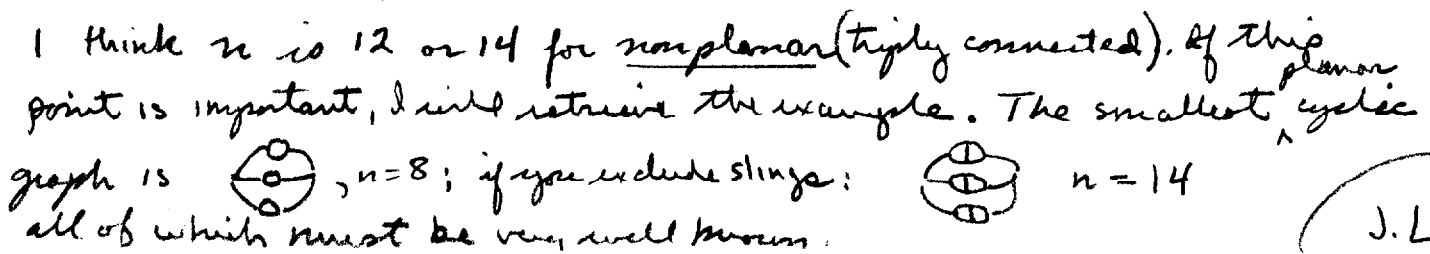 I think n is 12 or 14 for nonplanar (triply connected). If this
point is important, I will retrieve the example. The smallest planar cyclic
graph is , n=8; if you exclude slings: n = 14
all of which must be very well known.
J. L